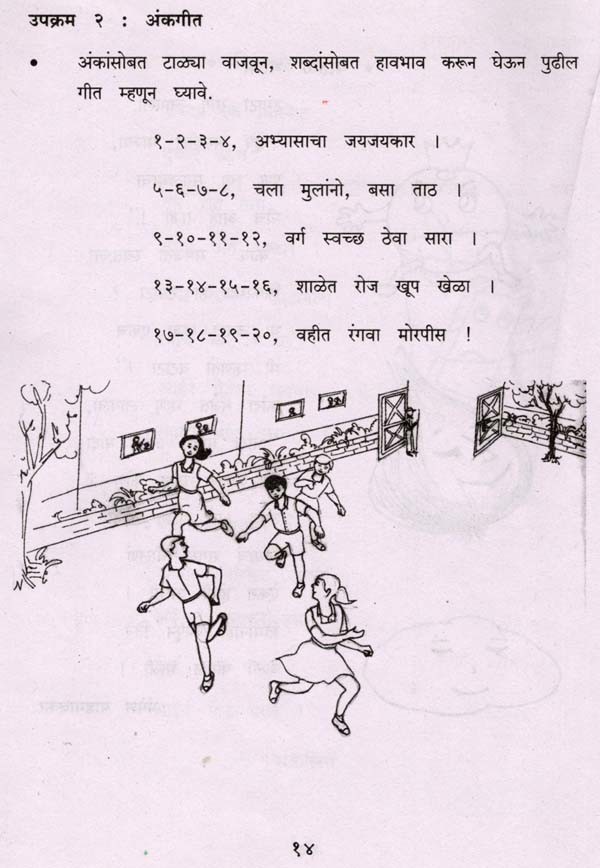 उपक्रम २ : अंकगीत
• अंकांसोबत टाळ्या वाजवून, शब्दांसोबत हावभाव करून घेऊन पुढील
गीत म्हणून घ्यावे.
१-२-३-४, अभ्यासाचा जयजयकार ।
५-६-७-८, चला मुलांनो, बसा ताठ ।
९-१०-११-१२, वर्ग स्वच्छ ठेवा सारा ।
१३-१४-१५-१६, शाळेत रोज खूप खेळा ।
१७-१८-१९-२०, वहीत रंगवा मोरपीस !
१४